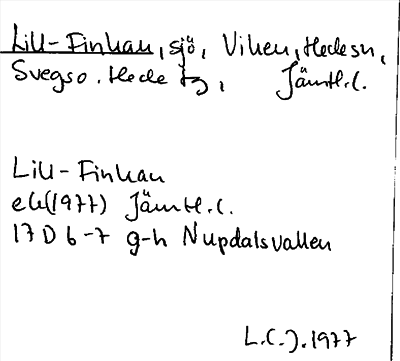 Lill-Finkån, sjö, Viken, Hedesn,
Svegs o. Hede tg, Jämtl.l.
Lill-Finkån
ek(1977) Jämtl.l.
17D 6-7 g-h Nupdalsvallen
L.C.J. 1977